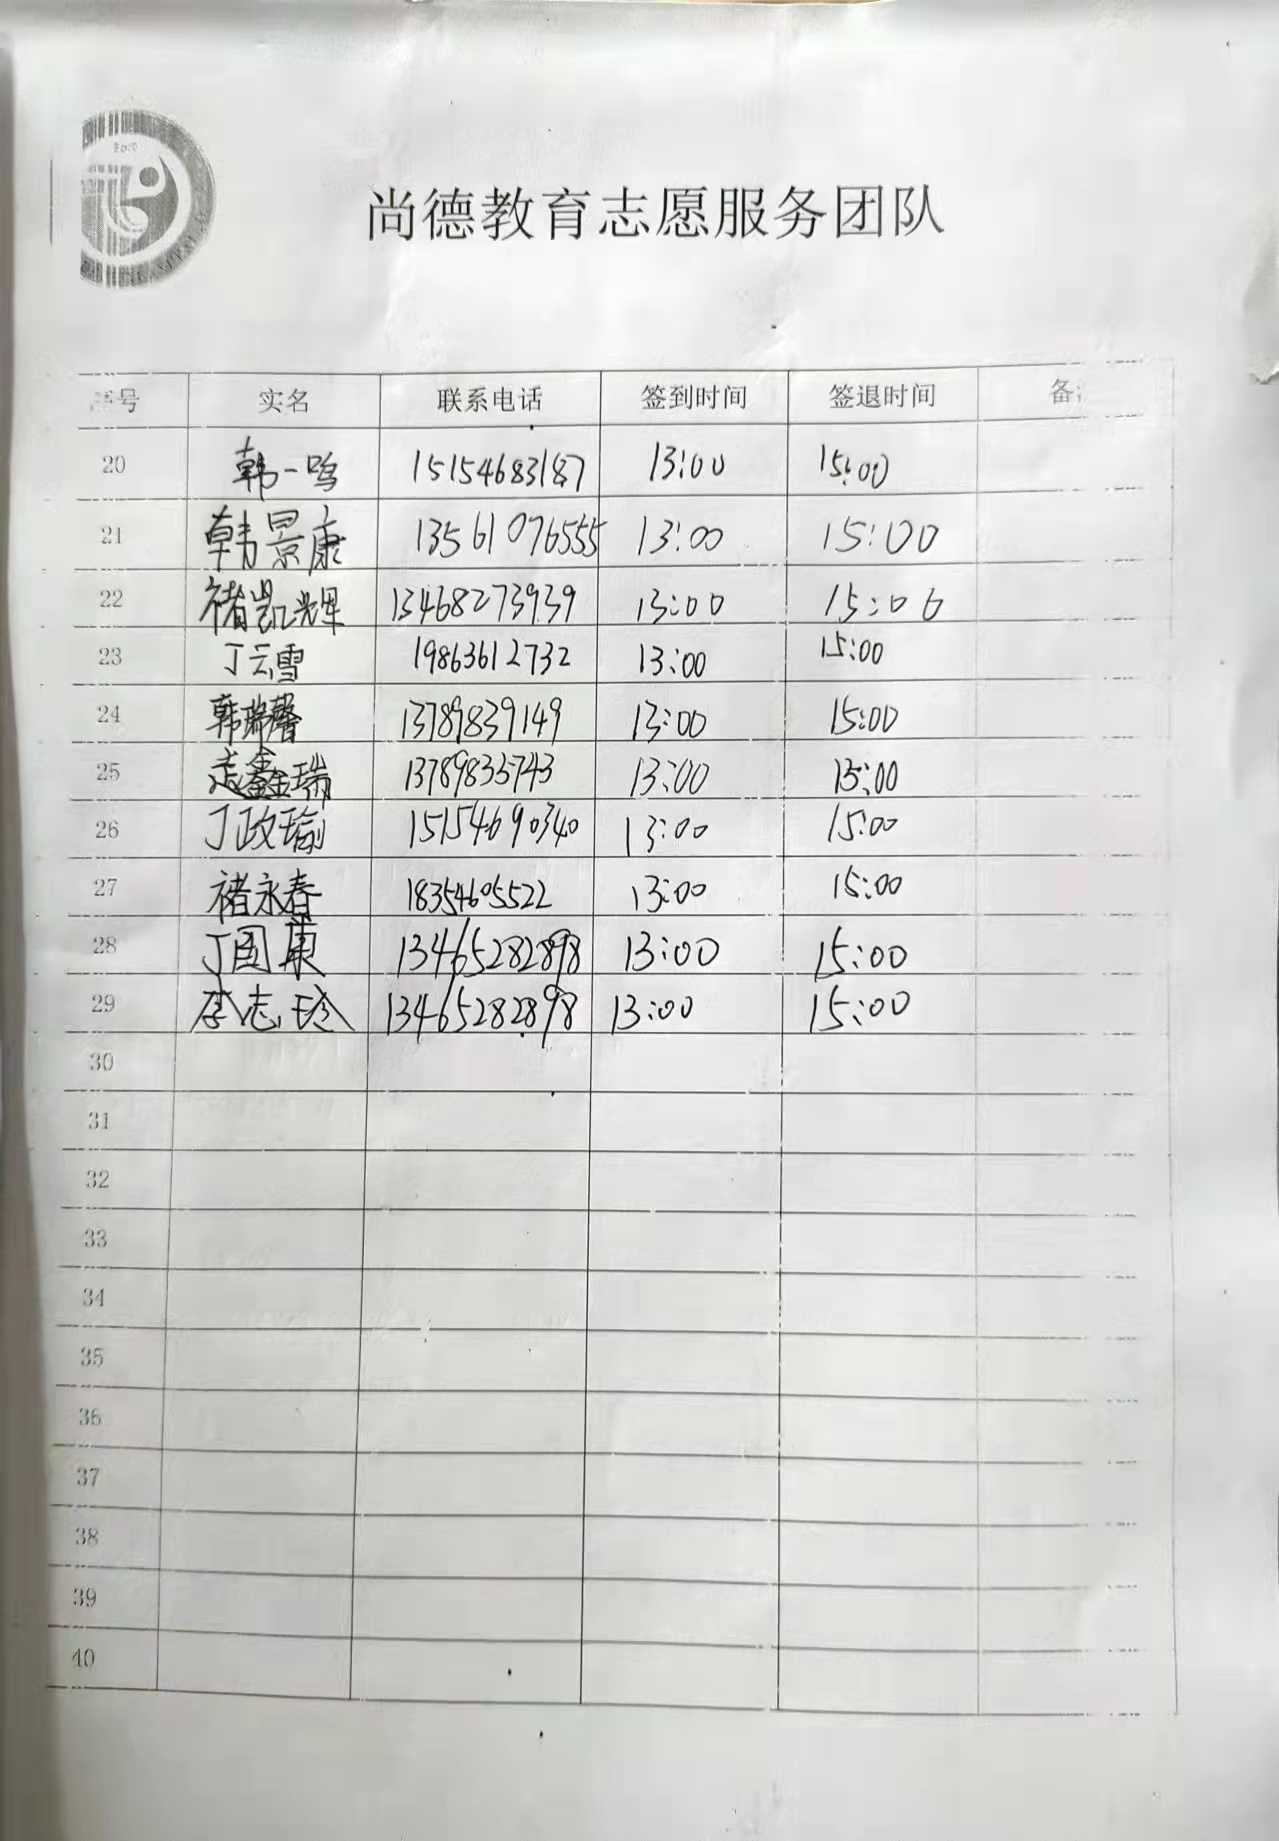 尚德教育志愿服务团队
序号 实名 联系电话 签到时间 签退时间 备
20 韩一鸣 15154683187 13:00 15:00
21 韩景康 13561076555 13:00 15:00
22 褚凯辉 13468273939 13:00 15:00
23 丁云雪 19863612732 13:00 15:00
24 韩瑞馨 13789839149 13:00 15:00
25 孟鑫瑞 13789833743 13:00 15:00
26 丁政瑜 15154690340 13:00 15:00
27 褚永春 18354605522 13:00 15:00
28 丁国康 13465282898 13:00 15:00
29 李志玲 13465282898 13:00 15:00
30
31
32
33
34
35
36
37
38
39
40